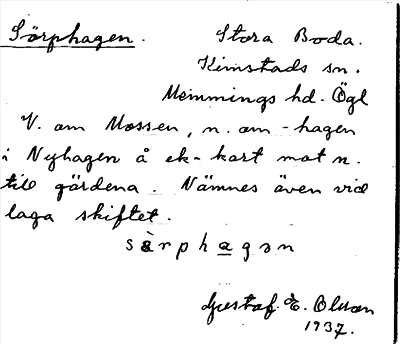 Sörphagen. Stora Boda.
Kimstads sn.
Memmings hd. Ögl
V. om Mossen, n. om -hagen
i Nyhagen å ek-kart mot n.
till gärdena. Nämnes även vid
laga skiftet.
særphagən
Gustaf E. Olsson
1937.